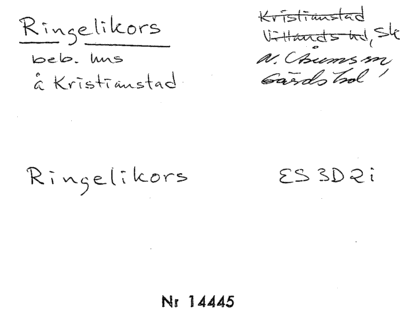 Ringelikors
beb. hus
å Kristianstad
Kristianstad
Villands hd, Sk
N. Åsums sn,
Gärds hd
Ringelikors
ES 3D2i
Nr 14445